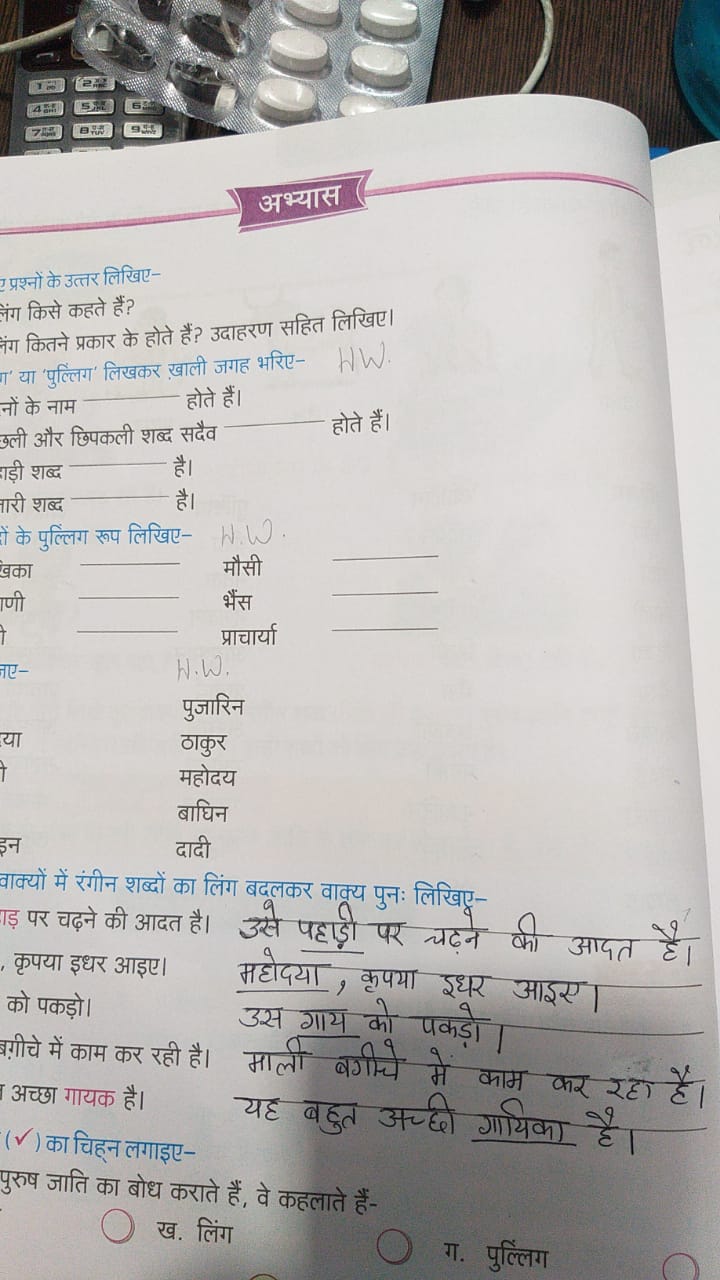 अभ्यास
प्रश्नों के उत्तर लिखिए–
लिंग किसे कहते हैं?
लिंग कितने प्रकार के होते हैं? उदाहरण सहित लिखिए।
या 'पुल्लिंग' लिखकर ख़ाली जगह भरिए– H.W.
नों के नाम ________ होते हैं।
छली और छिपकली शब्द सदैव ________ होते हैं।
ाड़ी शब्द ________ है।
शब्द ________ है।
ों के पुल्लिंग रूप लिखिए– H.W.
खिका ________ मौसी ________
णी ________ भैंस ________
________ प्राचार्या ________
H.W.
पुजारिन
या ठाकुर
महोदय
बाघिन
इन दादी
वाक्यों में रंगीन शब्दों का लिंग बदलकर वाक्य पुनः लिखिए–
ाड़ पर चढ़ने की आदत है। उसे पहाड़ी पर चढ़ने की आदत है।
, कृपया इधर आइए। महोदया, कृपया इधर आइए।
को पकड़ो। उस गाय को पकड़ो।
बग़ीचे में काम कर रही है। माली बगीचे में काम कर रहा है।
अच्छा गायक है। यह बहुत अच्छी गायिका है।
(✓) का चिह्न लगाइए–
पुरुष जाति का बोध कराते हैं, वे कहलाते हैं-
ख. लिंग ग. पुल्लिंग